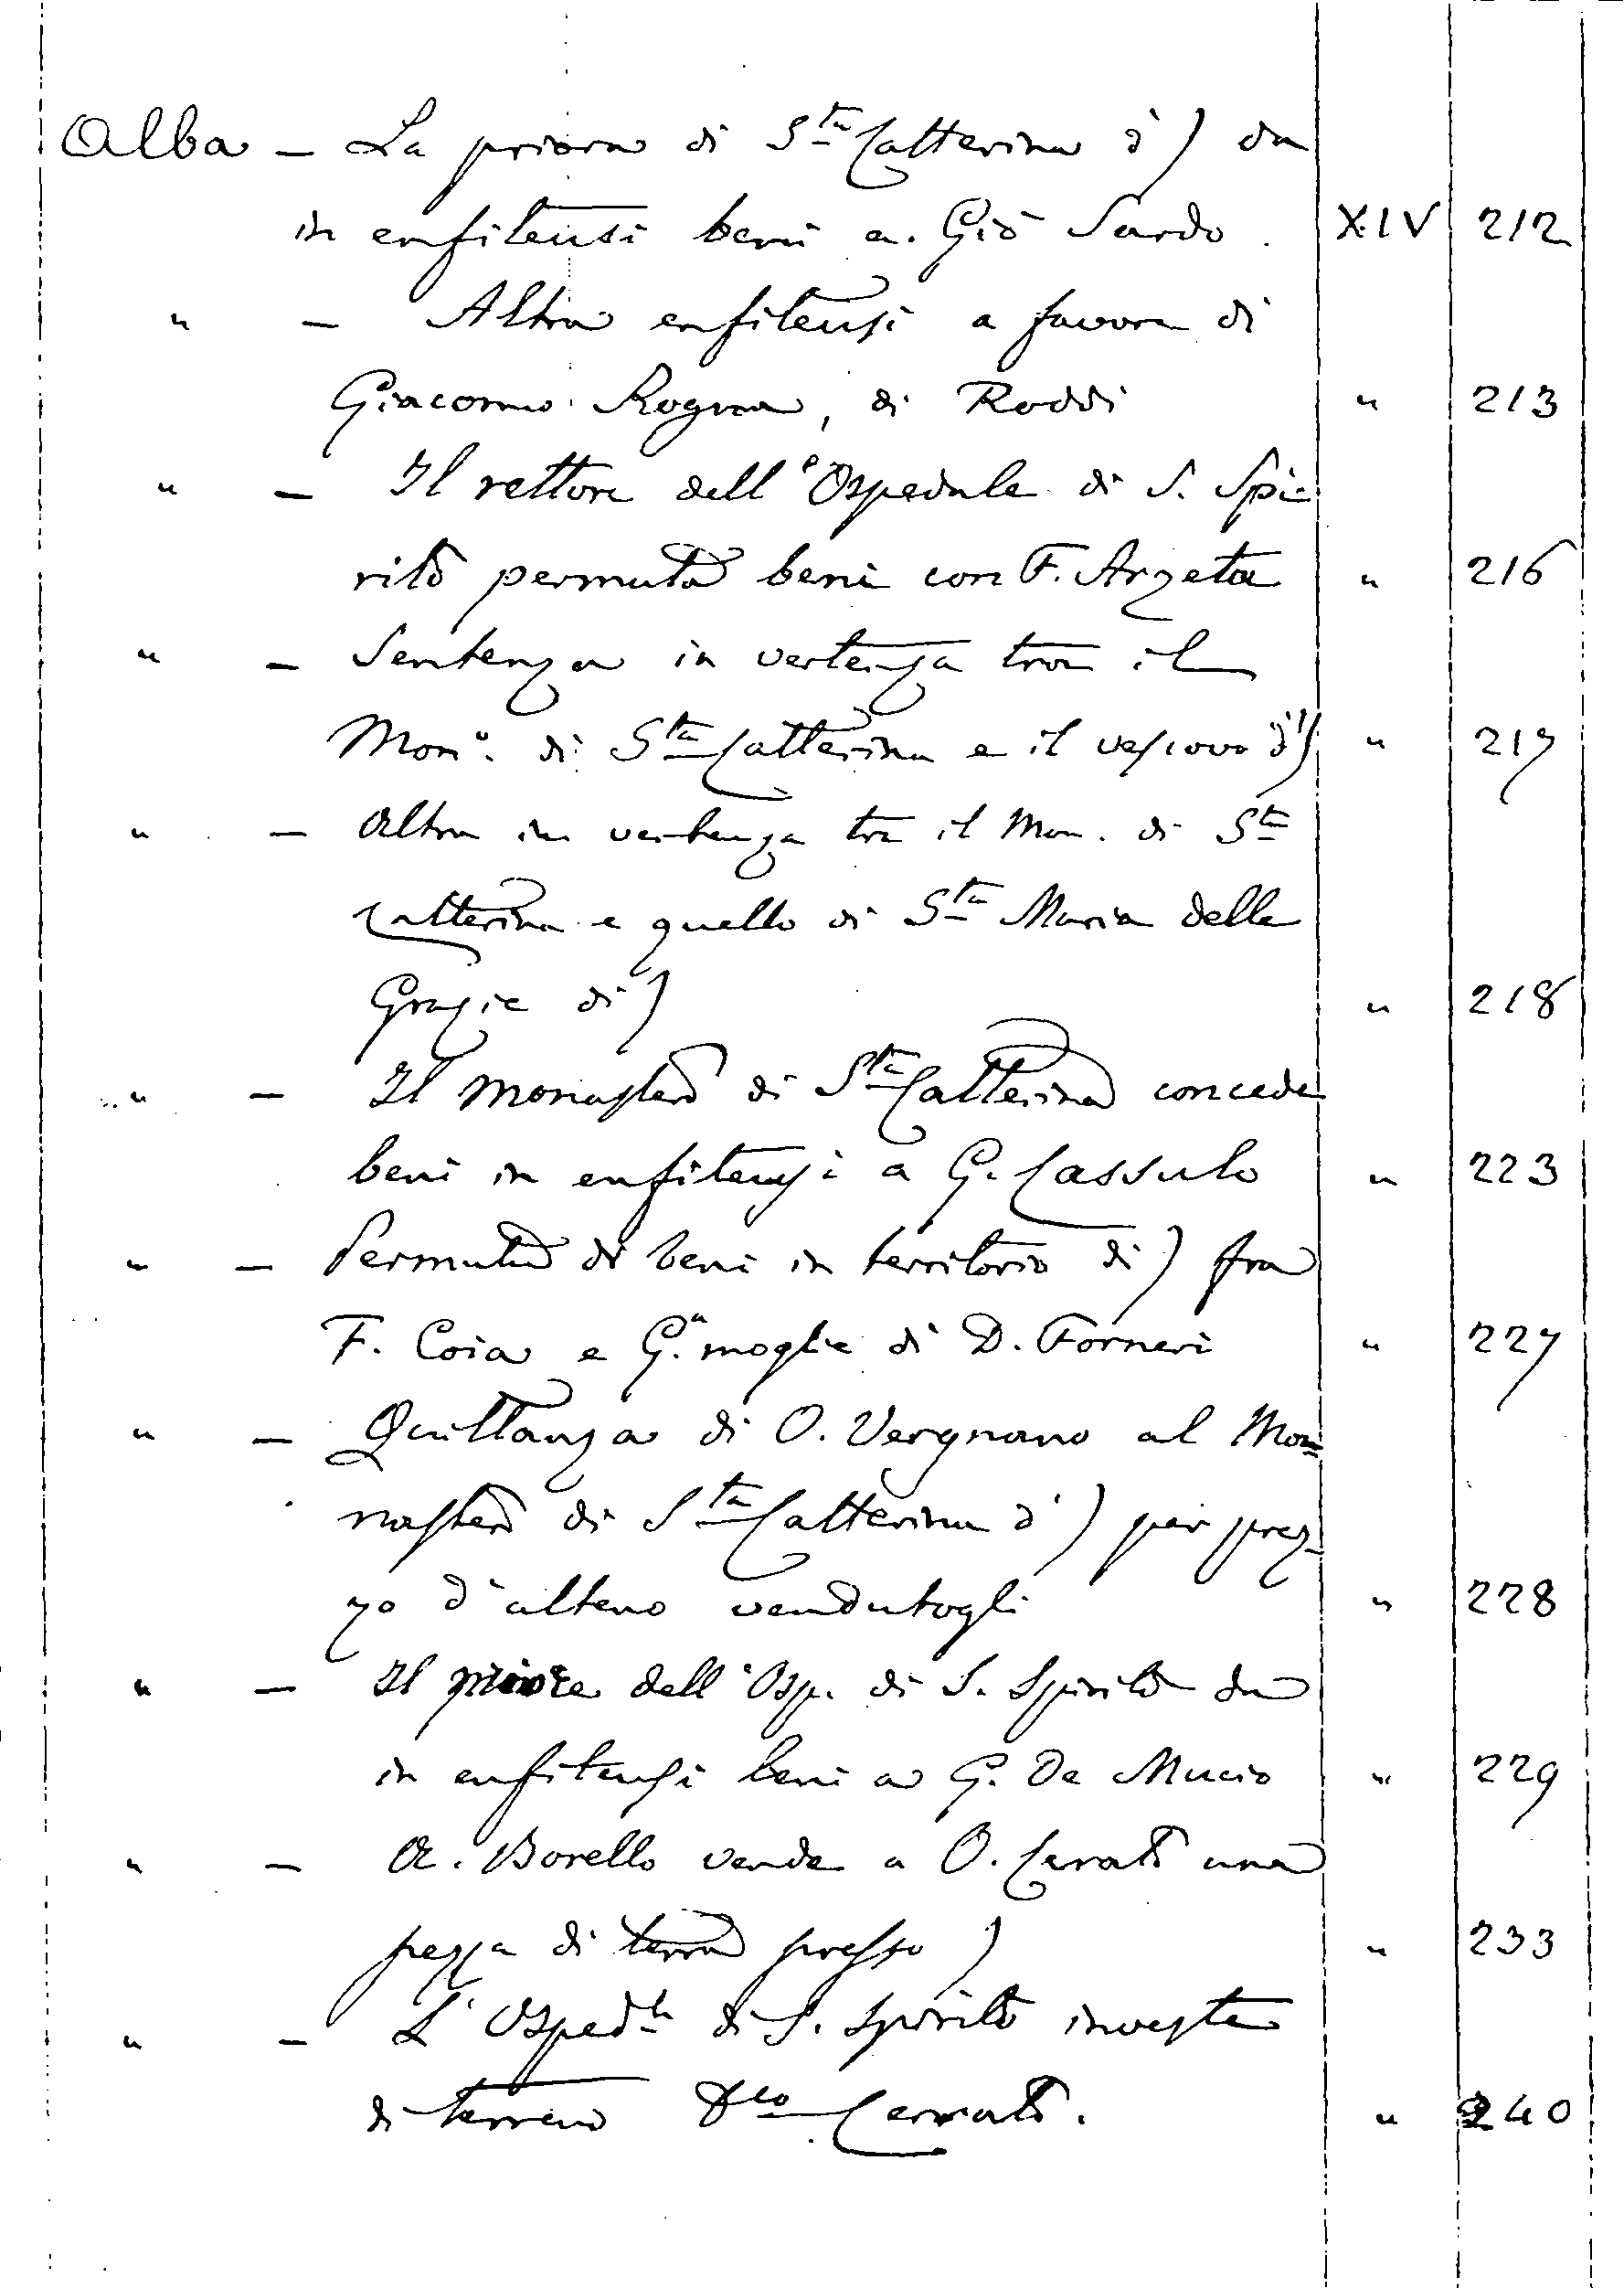 Alba - La priora di S.ta Catterina d' ) da
in enfiteusi beni a Giò Sardo. XIV 212
" - Altra enfiteusi a favore di
Giacomo Rogna, di Roddi " 213
" - Il rettore dell'Ospedale di S. Spi-
rito permuta beni con F. Arzeta " 216
" - Sentenza in vertenza tra il
Mon.° di S.ta Catterina e il vescovo d') " 217
" - Altra in vertenza tra il Mon. di S.ta
Catterina e quello di S.ta Maria delle
Grazie di ) " 218
" - Il monastero di S.ta Catterina concede
beni in enfiteusi a G. Cassulo " 223
" - Permuta di beni in territorio di ) fra
F. Coia e G.a moglie di D. Forneri " 227
" - Quittanza di O. Vergnano al Mo-
nastero di S.ta Catterina d' ) per prez-
zo d'alteno vendutogli " 228
" - Il priore dell'Osp. di S. Spirito da
in enfiteusi beni a G. De Mucio " 229
" - A. Borello vende a O. Cerato una
pezza di terra presso ) " 233
" - L'Osped.le di S. Spirito investe
di terreno D.co Cerrato. " 240